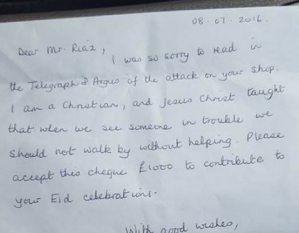 08.07.2016.
Dear Mr. Riaz,
I was so sorry to read in
the Telegraph & Argus of the attack on your shop.
I am a Christian, and Jesus Christ taught
that when we see someone in trouble we
should not walk by without helping. Please
accept this cheque £1000 to contribute to
your Eid celebrations.
With good wishes,